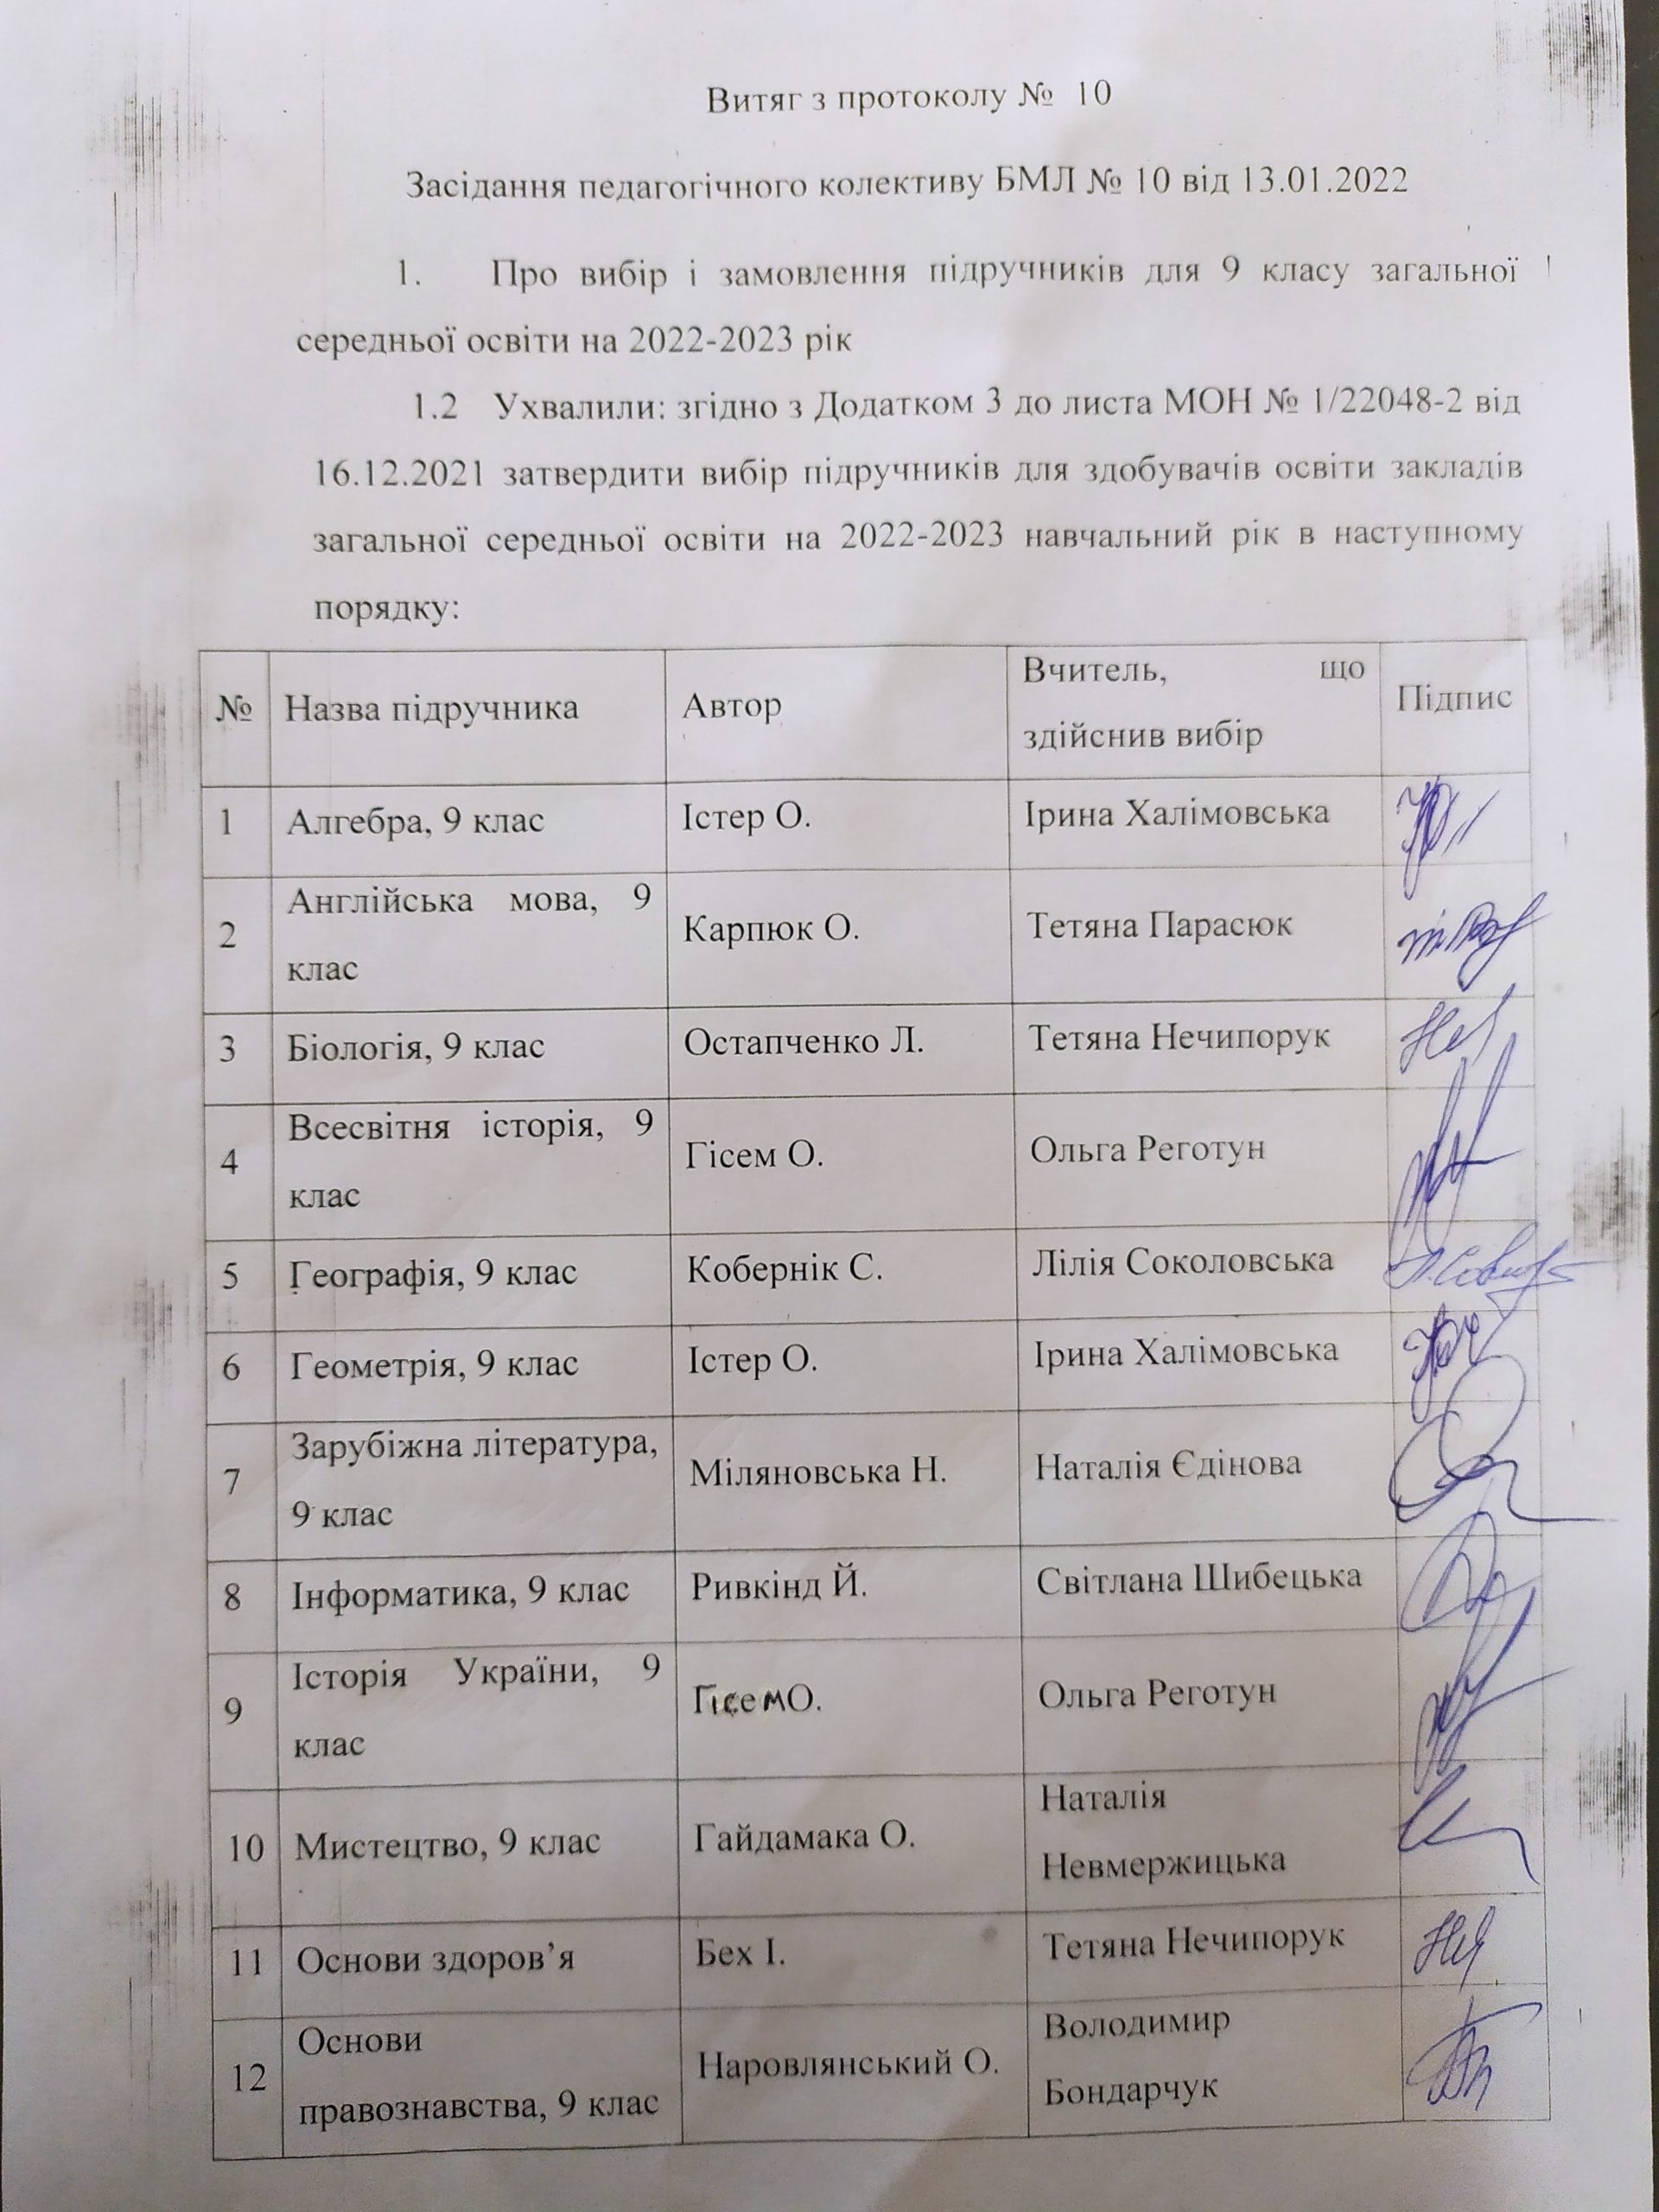 Витяг з протоколу № 10
Засідання педагогічного колективу БМЛ № 10 від 13.01.2022
1. Про вибір і замовлення підручників для 9 класу загальної
середньої освіти на 2022-2023 рік
1.2 Ухвалили: згідно з Додатком 3 до листа МОН № 1/22048-2 від
16.12.2021 затвердити вибір підручників для здобувачів освіти закладів
загальної середньої освіти на 2022-2023 навчальний рік в наступному
порядку:
№ Назва підручника Автор Вчитель, що
здійснив вибір Підпис
1 Алгебра, 9 клас Істер О. Ірина Халімовська
2 Англійська мова, 9
клас Карпюк О. Тетяна Парасюк
3 Біологія, 9 клас Остапченко Л. Тетяна Нечипорук
4 Всесвітня історія, 9
клас Гісем О. Ольга Реготун
5 Географія, 9 клас Кобернік С. Лілія Соколовська
6 Геометрія, 9 клас Істер О. Ірина Халімовська
7 Зарубіжна література,
9 клас Міляновська Н. Наталія Єдінова
8 Інформатика, 9 клас Ривкінд Й. Світлана Шибецька
9 Історія України, 9
клас Гісем О. Ольга Реготун
10 Мистецтво, 9 клас Гайдамака О. Наталія
Невмержицька
11 Основи здоров’я Бех І. Тетяна Нечипорук
12 Основи
правознавства, 9 клас Наровлянський О. Володимир
Бондарчук